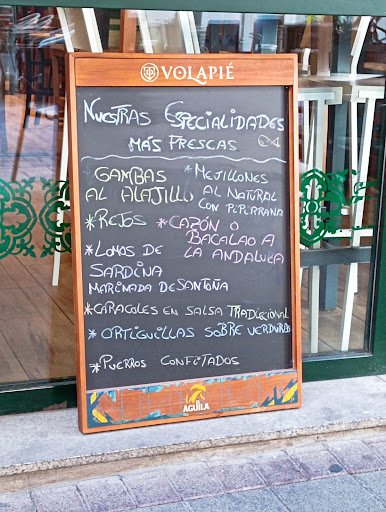 VOLAPIÉ
NUESTRAS ESPECIALIDADES
MÁS FRESCAS
GAMBAS
AL AJILLO
* MEJILLONES
AL NATURAL
CON PIPIRRANA
* REJOS
* CAZÓN O
BACALAO A
LA ANDALUZA
* LOMOS DE
SARDINA
MARINADA DE SANTOÑA
* CARACOLES EN SALSA TRADICIONAL
* ORTIGUILLAS SOBRE VERDURAS
* PUERROS CONFITADOS
EL AGUILA